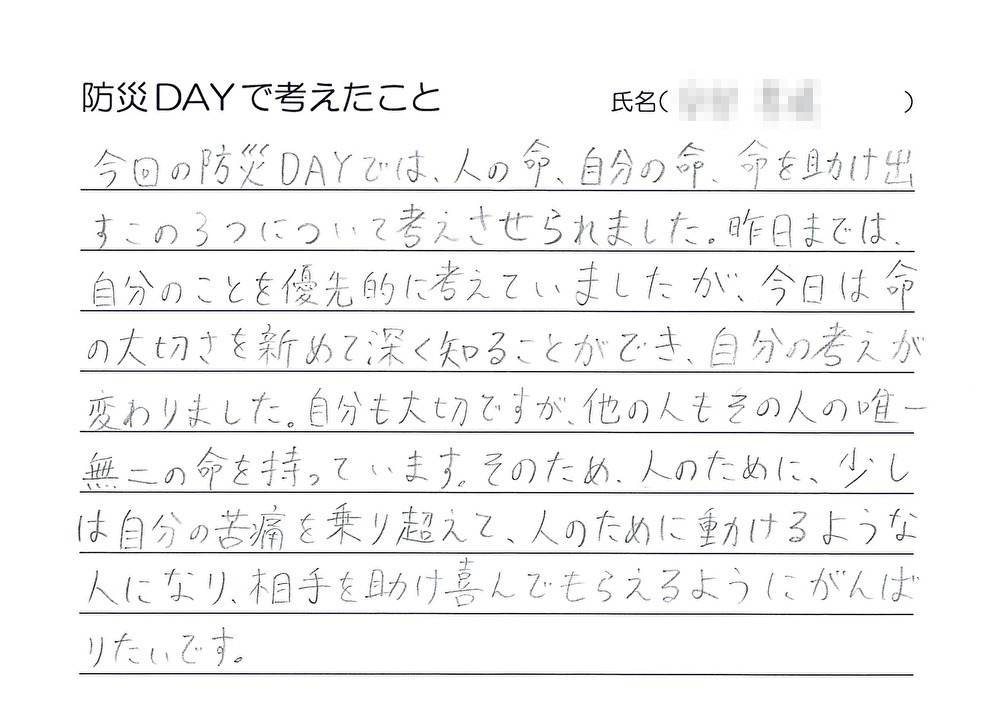 防災DAYで考えたこと 氏名( )
今回の防災DAYでは、人の命、自分の命、命を助け出
すこの3つについて考えさせられました。昨日までは、
自分のことを優先的に考えていましたが、今日は命
の大切さを新めて深く知ることができ、自分の考えが
変わりました。自分も大切ですが、他の人もその人の唯一
無二の命を持っています。そのため、人のために、少し
は自分の苦痛を乗り超えて、人のために動けるような
人になり、相手を助け喜んでもらえるようにがんば
りたいです。